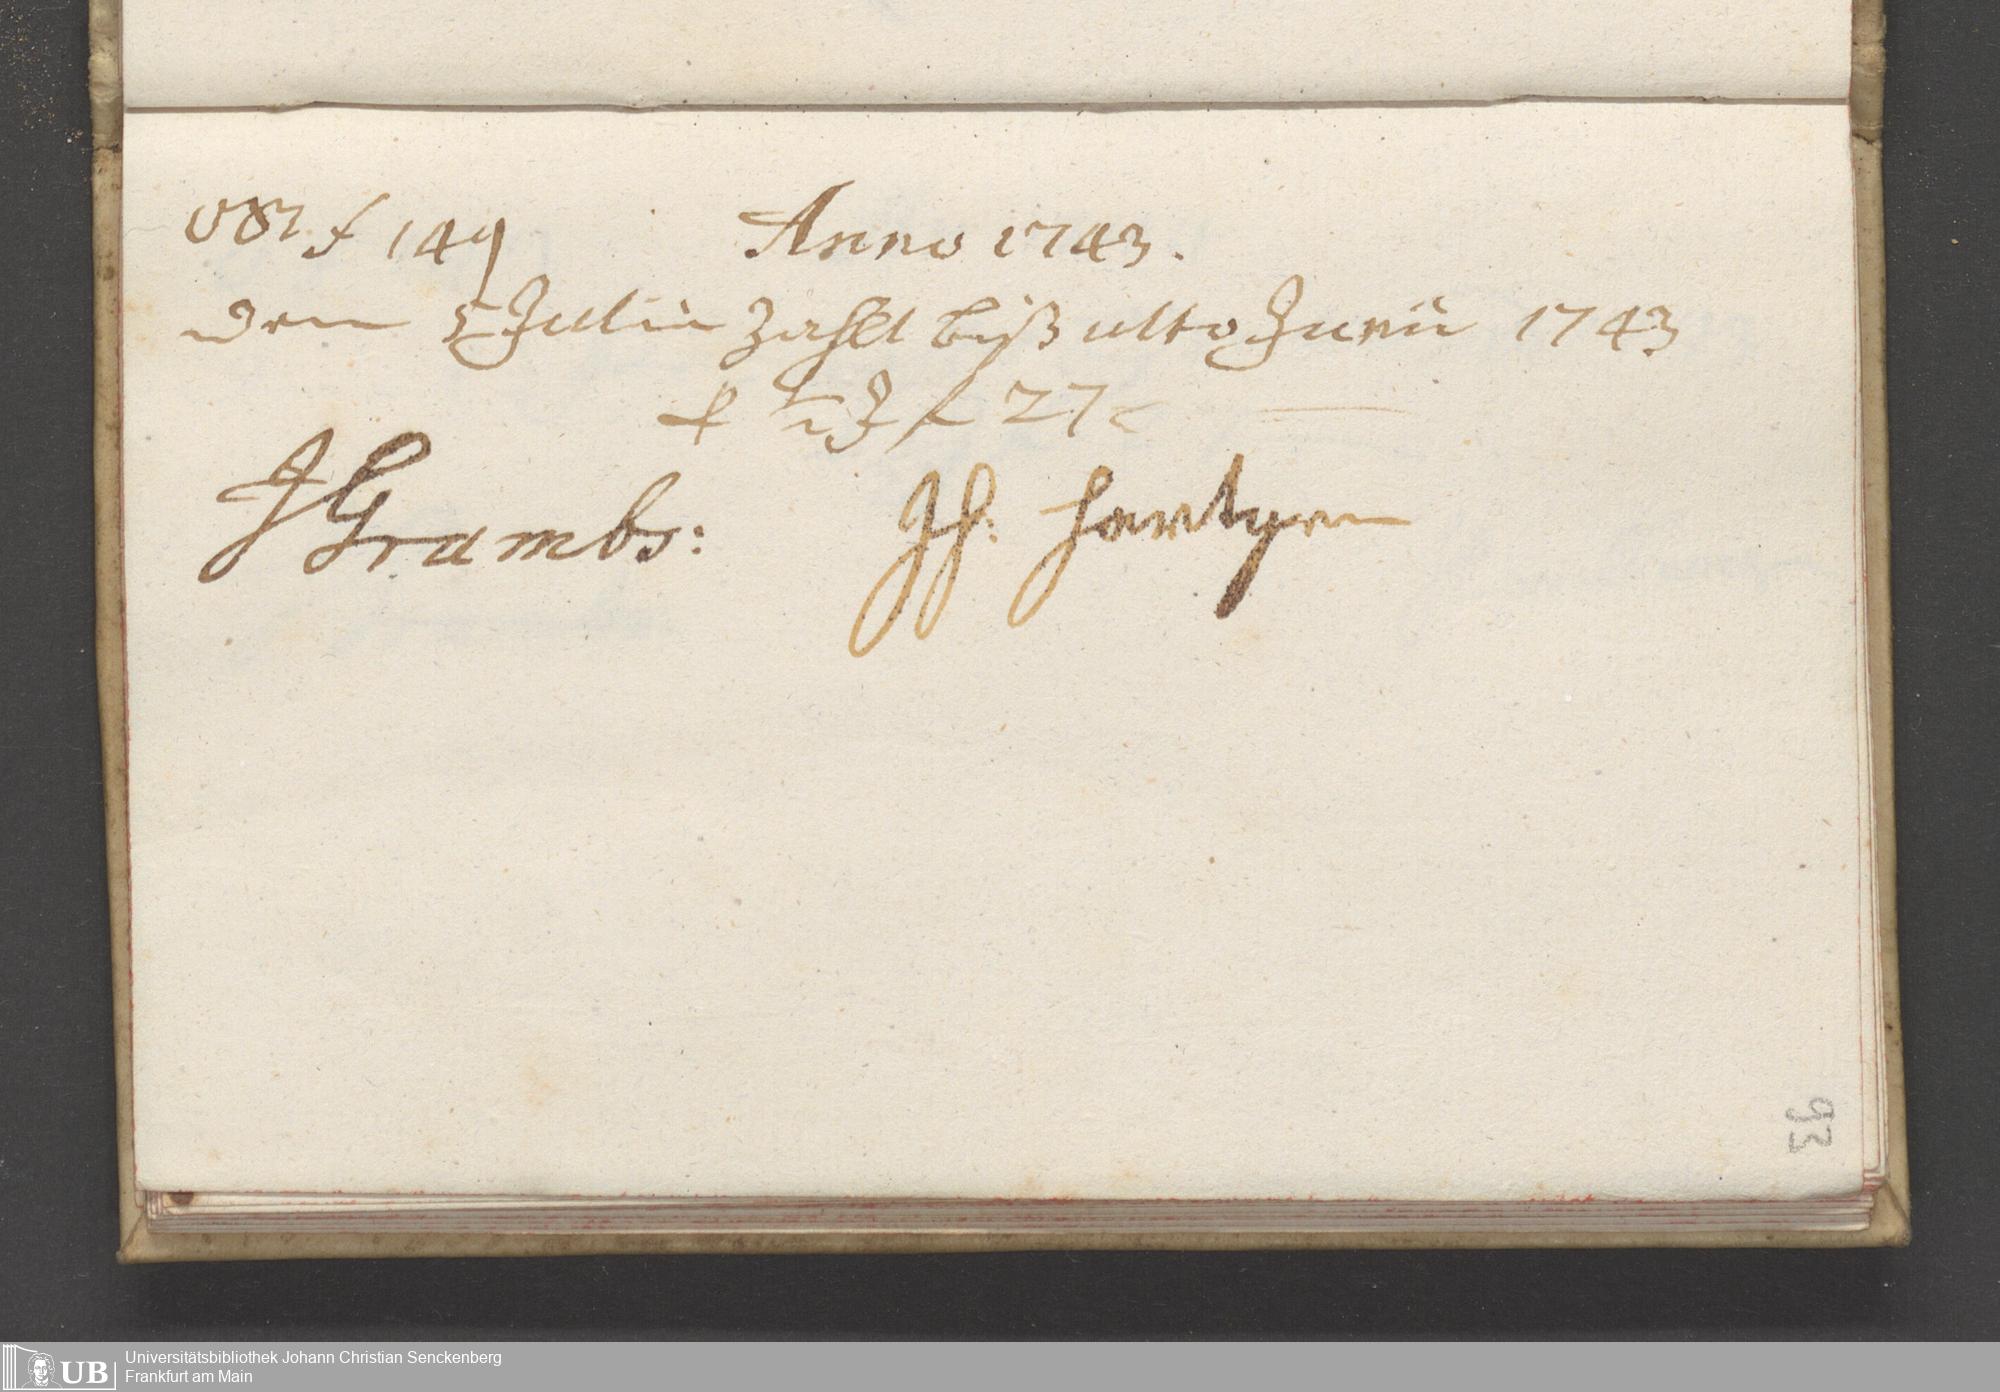 f 149 Anno 1743.
den 5 Julii zahlt biß ulto Junii 1743
f 27
JGrambs: Jh: Hartgen
93
UB
Universitätsbibliothek Johann Christian Senckenberg
Frankfurt am Main